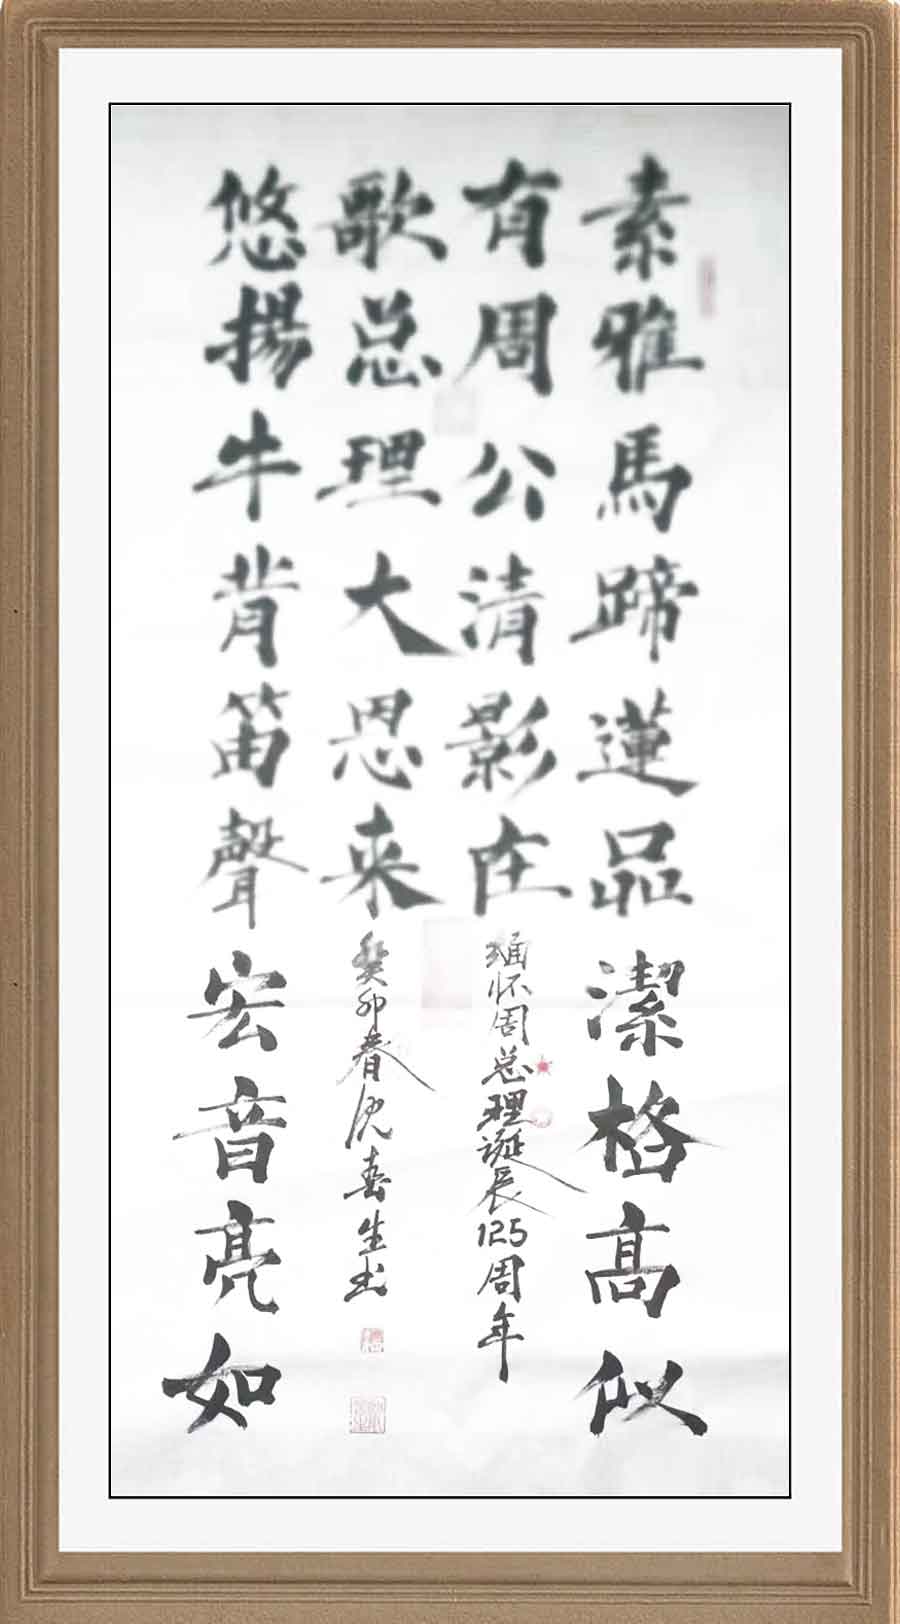 素雅馬蹄蓮品潔格高似
有周公清影在
缅怀周总理诞辰125周年
悠揚牛背笛聲宏音亮如
歌总理大恩来
癸卯春沈生书